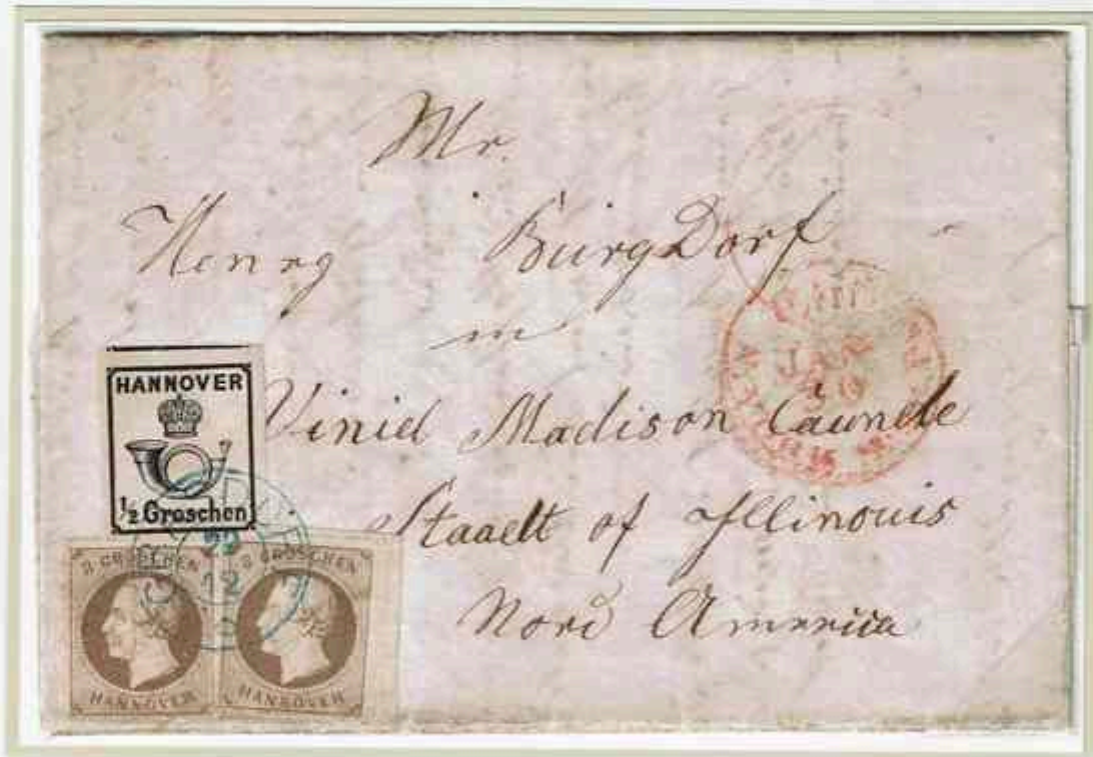 Mr.
Henrg BürgDorf
in
Viniel Madison Caunele
Staaelt of Jllinouis
Nord Amerrica
HANNOVER
½ Groschen
3 GROSCHEN
HANNOVER
3 GROSCHEN
HANNOVER
22
12
JAN